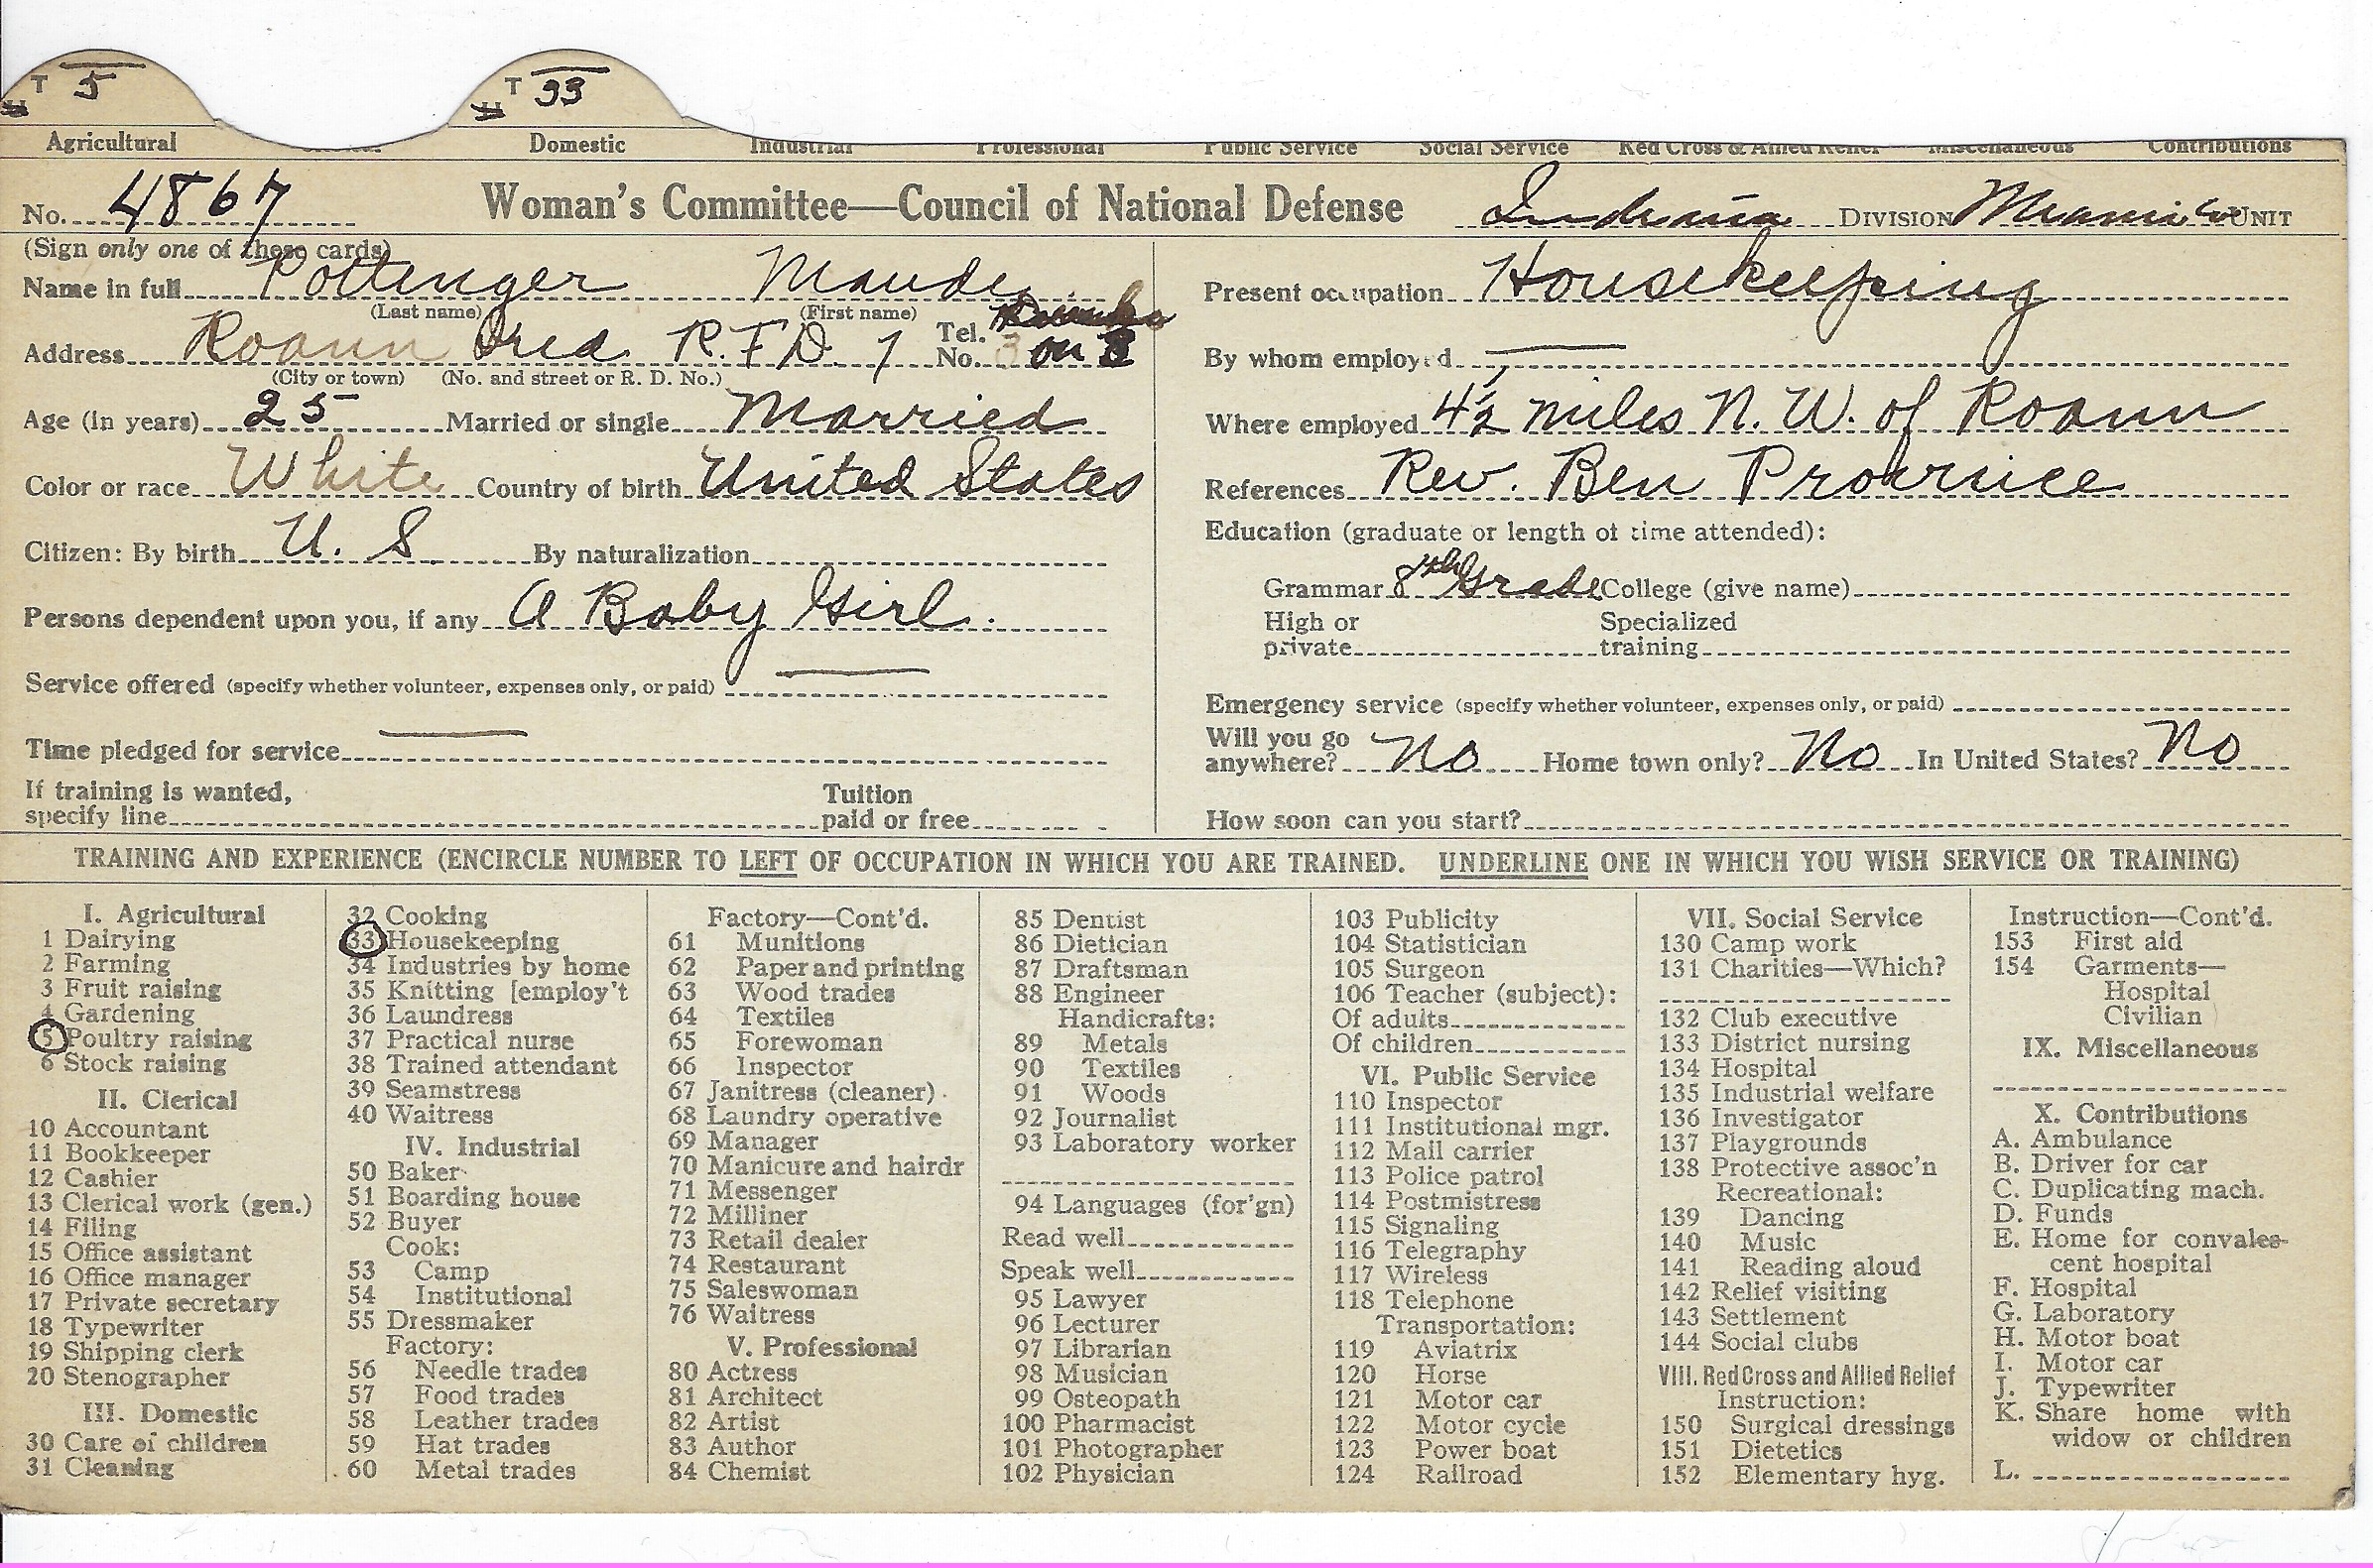 T 5
T 33
Agricultural Domestic Industrial Professional Public Service Social Service Red Cross & Allied Relief Miscellaneous Contributions
No. 4867 Woman's Committee—Council of National Defense Indiana DIVISION Miami Co UNIT
(Sign only one of these cards)
Name in full Pottenger Maude
(Last name) (First name)
Address Roann Ind. R.F.D. 1 Tel. No. 3 on 8
(City or town) (No. and street or R. D. No.)
Age (in years) 25 Married or single Married
Color or race White Country of birth United States
Citizen: By birth U. S. By naturalization
Persons dependent upon you, if any A Baby Girl.
Service offered (specify whether volunteer, expenses only, or paid) —
Time pledged for service —
If training is wanted,
specify line Tuition paid or free
Present occupation Housekeeping
By whom employed —
Where employed 4½ miles N. W. of Roann
References Rev. Ben Provnice
Education (graduate or length of time attended):
Grammar 8th Grade College (give name)
High or private Specialized training
Emergency service (specify whether volunteer, expenses only, or paid)
Will you go anywhere? No Home town only? No In United States? No
How soon can you start?
TRAINING AND EXPERIENCE (ENCIRCLE NUMBER TO LEFT OF OCCUPATION IN WHICH YOU ARE TRAINED. UNDERLINE ONE IN WHICH YOU WISH SERVICE OR TRAINING)
I. Agricultural
1 Dairying
2 Farming
3 Fruit raising
4 Gardening
5 Poultry raising
6 Stock raising
II. Clerical
10 Accountant
11 Bookkeeper
12 Cashier
13 Clerical work (gen.)
14 Filing
15 Office assistant
16 Office manager
17 Private secretary
18 Typewriter
19 Shipping clerk
20 Stenographer
III. Domestic
30 Care of children
31 Cleaning
32 Cooking
33 Housekeeping
34 Industries by home
35 Knitting [employ't
36 Laundress
37 Practical nurse
38 Trained attendant
39 Seamstress
40 Waitress
IV. Industrial
50 Baker
51 Boarding house
52 Buyer
Cook:
53 Camp
54 Institutional
55 Dressmaker
Factory:
56 Needle trades
57 Food trades
58 Leather trades
59 Hat trades
60 Metal trades
Factory—Cont'd.
61 Munitions
62 Paper and printing
63 Wood trades
64 Textiles
65 Forewoman
66 Inspector
67 Janitress (cleaner)
68 Laundry operative
69 Manager
70 Manicure and hairdr
71 Messenger
72 Milliner
73 Retail dealer
74 Restaurant
75 Saleswoman
76 Waitress
V. Professional
80 Actress
81 Architect
82 Artist
83 Author
84 Chemist
85 Dentist
86 Dietician
87 Draftsman
88 Engineer
Handicrafts:
89 Metals
90 Textiles
91 Woods
92 Journalist
93 Laboratory worker
94 Languages (for'gn)
Read well
Speak well
95 Lawyer
96 Lecturer
97 Librarian
98 Musician
99 Osteopath
100 Pharmacist
101 Photographer
102 Physician
103 Publicity
104 Statistician
105 Surgeon
106 Teacher (subject):
Of adults
Of children
VI. Public Service
110 Inspector
111 Institutional mgr.
112 Mail carrier
113 Police patrol
114 Postmistress
115 Signaling
116 Telegraphy
117 Wireless
118 Telephone
Transportation:
119 Aviatrix
120 Horse
121 Motor car
122 Motor cycle
123 Power boat
124 Railroad
VII. Social Service
130 Camp work
131 Charities—Which?
132 Club executive
133 District nursing
134 Hospital
135 Industrial welfare
136 Investigator
137 Playgrounds
138 Protective assoc'n
Recreational:
139 Dancing
140 Music
141 Reading aloud
142 Relief visiting
143 Settlement
144 Social clubs
VIII. Red Cross and Allied Relief
Instruction:
150 Surgical dressings
151 Dietetics
152 Elementary hyg.
Instruction—Cont'd.
153 First aid
154 Garments—
Hospital
Civilian
IX. Miscellaneous
X. Contributions
A. Ambulance
B. Driver for car
C. Duplicating mach.
D. Funds
E. Home for convales-
cent hospital
F. Hospital
G. Laboratory
H. Motor boat
I. Motor car
J. Typewriter
K. Share home with
widow or children
L.